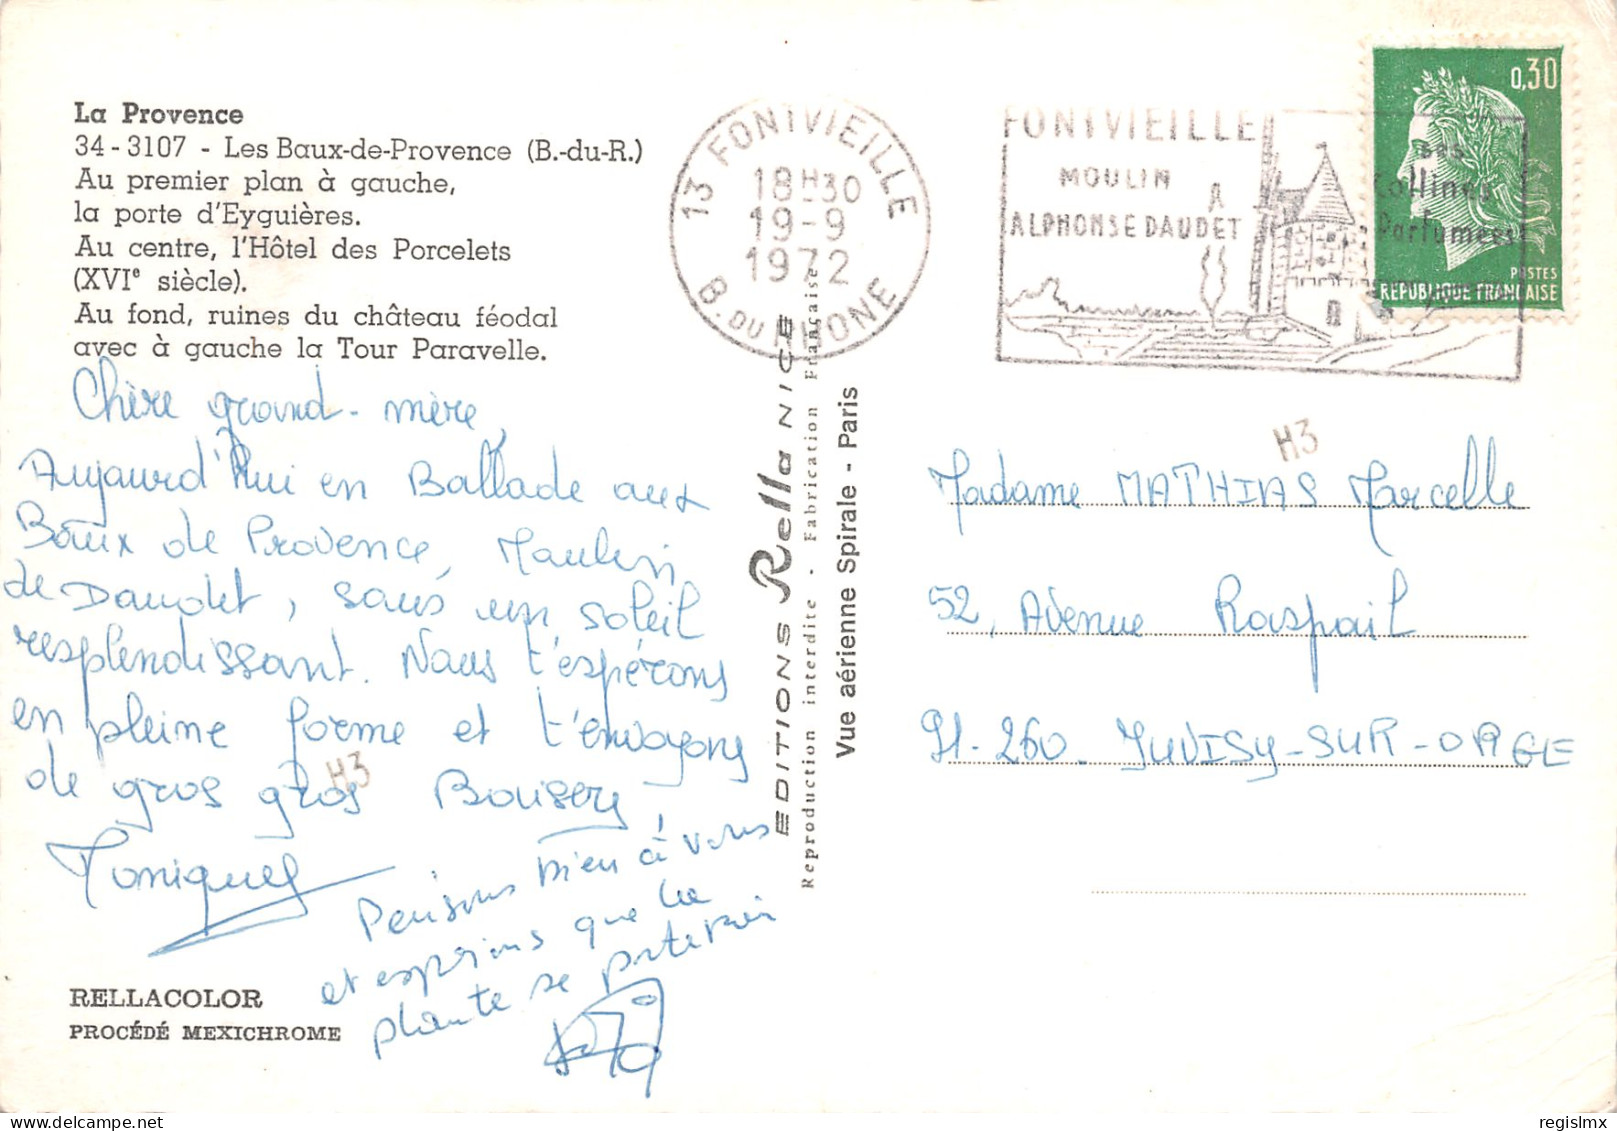 La Provence
34 - 3107 - Les Baux-de-Provence (B.-du-R.)
Au premier plan à gauche,
la porte d'Eyguières.
Au centre, l'Hôtel des Porcelets
(XVIe siècle).
Au fond, ruines du château féodal
avec à gauche la Tour Paravelle.
Chère grand-mère,
Aujourd'hui en Ballade aux
Baux de Provence, Moulin
de Daudet, sous un soleil
resplendissant. Nous t'espérons
en pleine forme et t'envoyons
de gros gros Baisers
H3
Monique
Pensons bien à vous
et espérons que la
plante se
RELLACOLOR
PROCÉDÉ MEXICHROME
EDITIONS Rella NICE
Reproduction interdite - Fabrication Française
Vue aérienne Spirale - Paris
13 FONTVIEILLE
18H30
19-9
1972
B. DU RHONE
FONTVIEILLE
MOULIN
A
ALPHONSE DAUDET
Ses
Collines
Parfumées
0,30
POSTES
REPUBLIQUE FRANÇAISE
H3
Madame MATHIAS Marcelle
52, Avenue Raspail
91-260. JUVISY-SUR-ORGE
regislmx